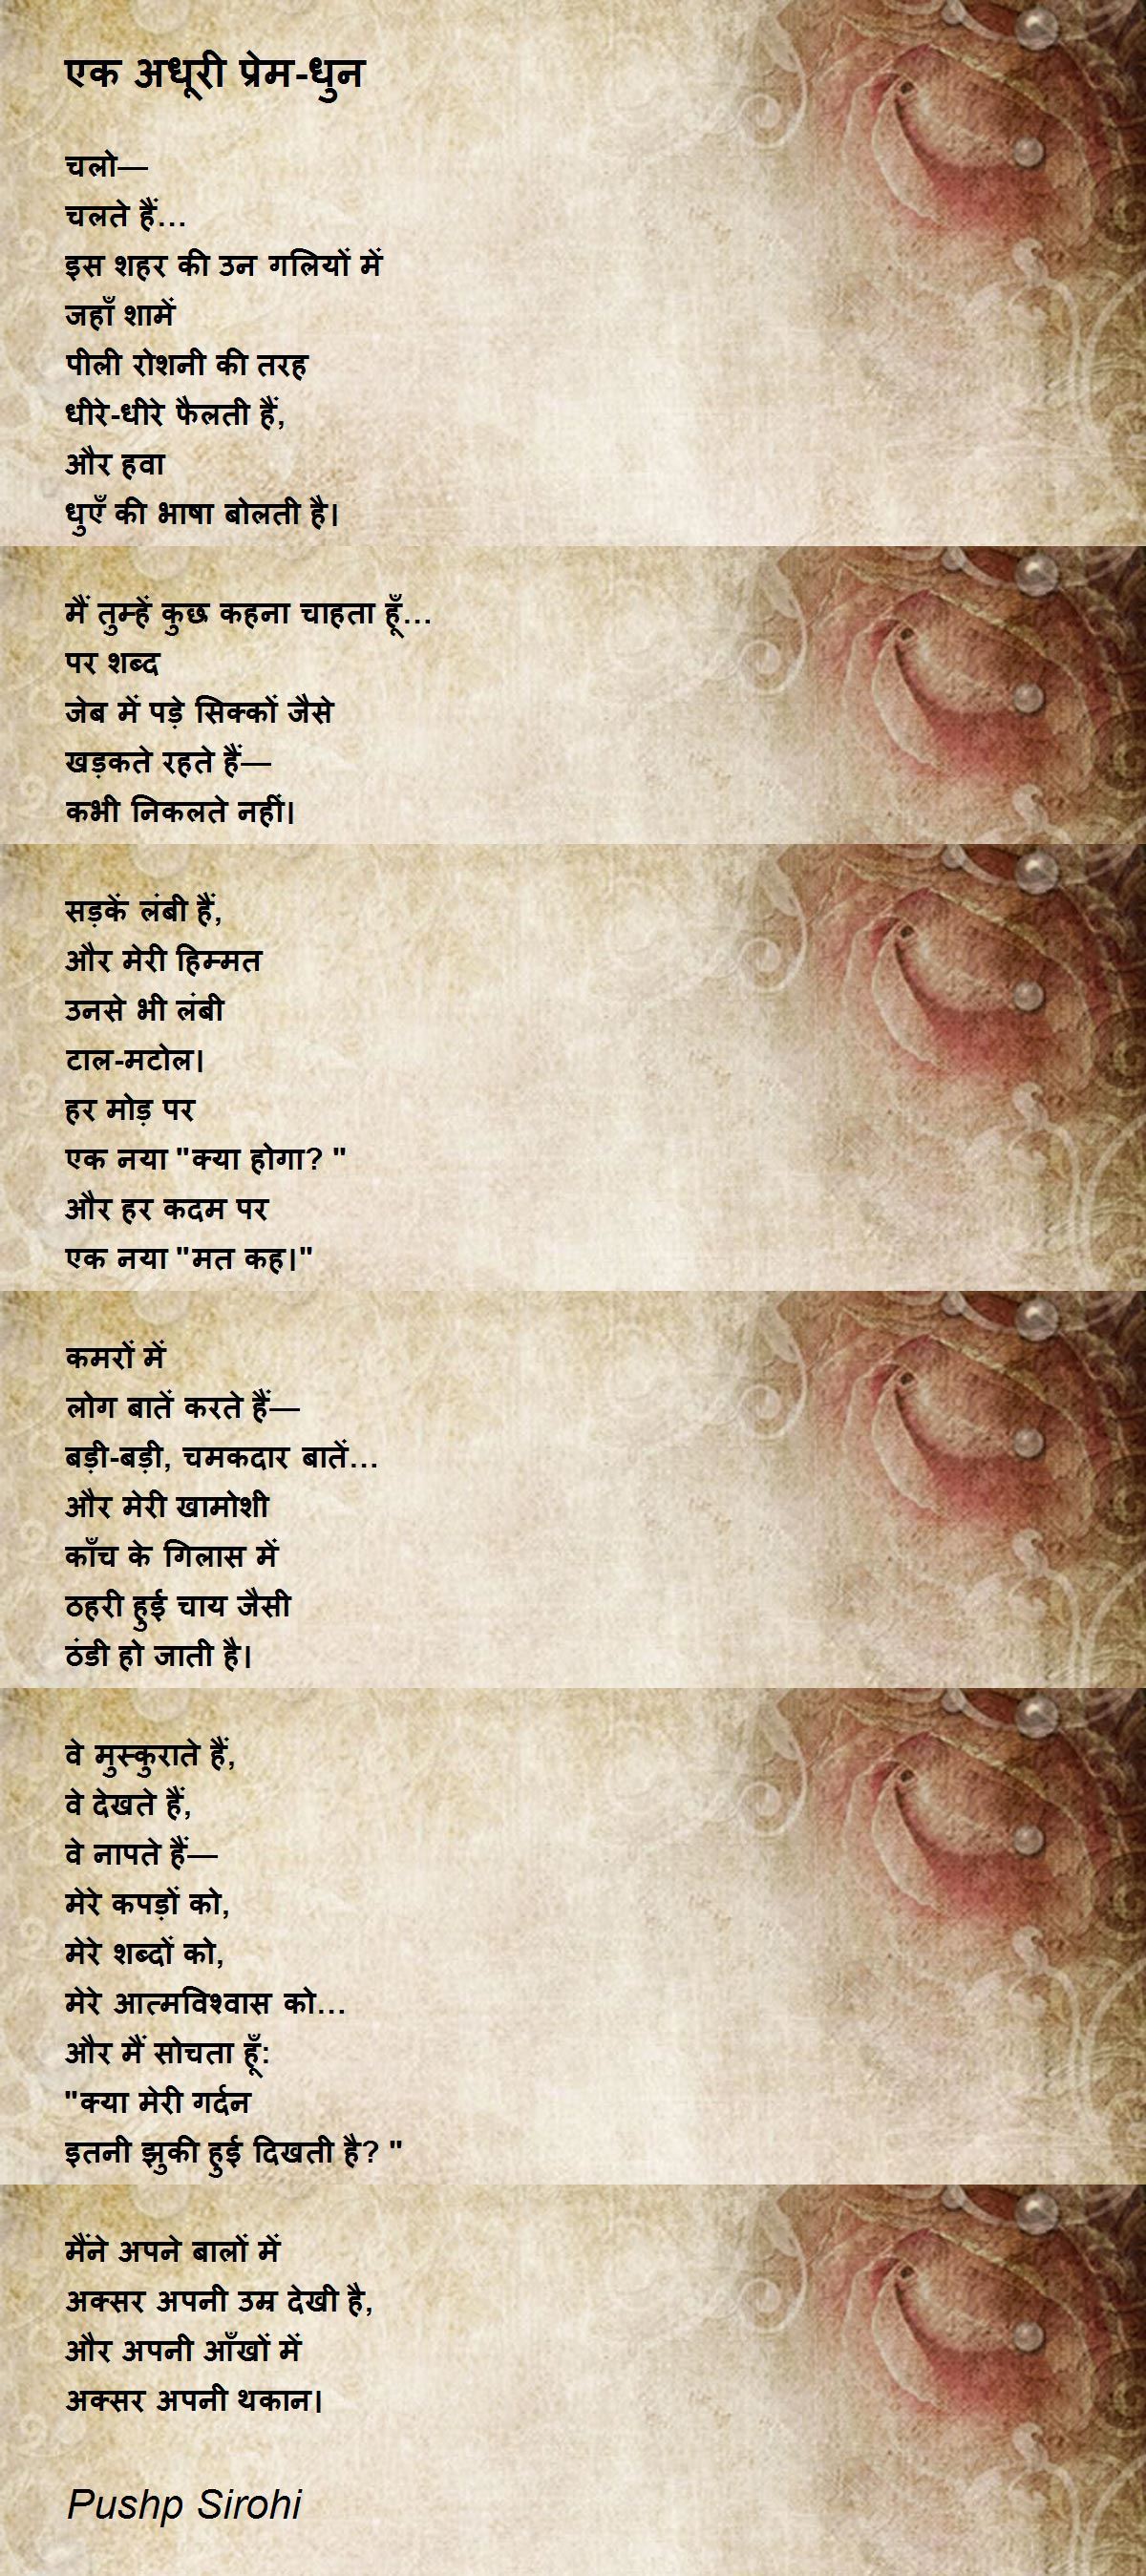 एक अधूरी प्रेम-धुन
चलो—
चलते हैं...
इस शहर की उन गलियों में
जहाँ शामें
पीली रोशनी की तरह
धीरे-धीरे फैलती हैं,
और हवा
धुएँ की भाषा बोलती है।
मैं तुम्हें कुछ कहना चाहता हूँ...
पर शब्द
जेब में पड़े सिक्कों जैसे
खड़कते रहते हैं—
कभी निकलते नहीं।
सड़कें लंबी हैं,
और मेरी हिम्मत
उनसे भी लंबी
टाल-मटोल।
हर मोड़ पर
एक नया "क्या होगा? "
और हर कदम पर
एक नया "मत कह।"
कमरों में
लोग बातें करते हैं—
बड़ी-बड़ी, चमकदार बातें...
और मेरी खामोशी
काँच के गिलास में
ठहरी हुई चाय जैसी
ठंडी हो जाती है।
वे मुस्कुराते हैं,
वे देखते हैं,
वे नापते हैं—
मेरे कपड़ों को,
मेरे शब्दों को,
मेरे आत्मविश्वास को...
और मैं सोचता हूँ:
"क्या मेरी गर्दन
इतनी झुकी हुई दिखती है? "
मैंने अपने बालों में
अक्सर अपनी उम्र देखी है,
और अपनी आँखों में
अक्सर अपनी थकान।
Pushp Sirohi